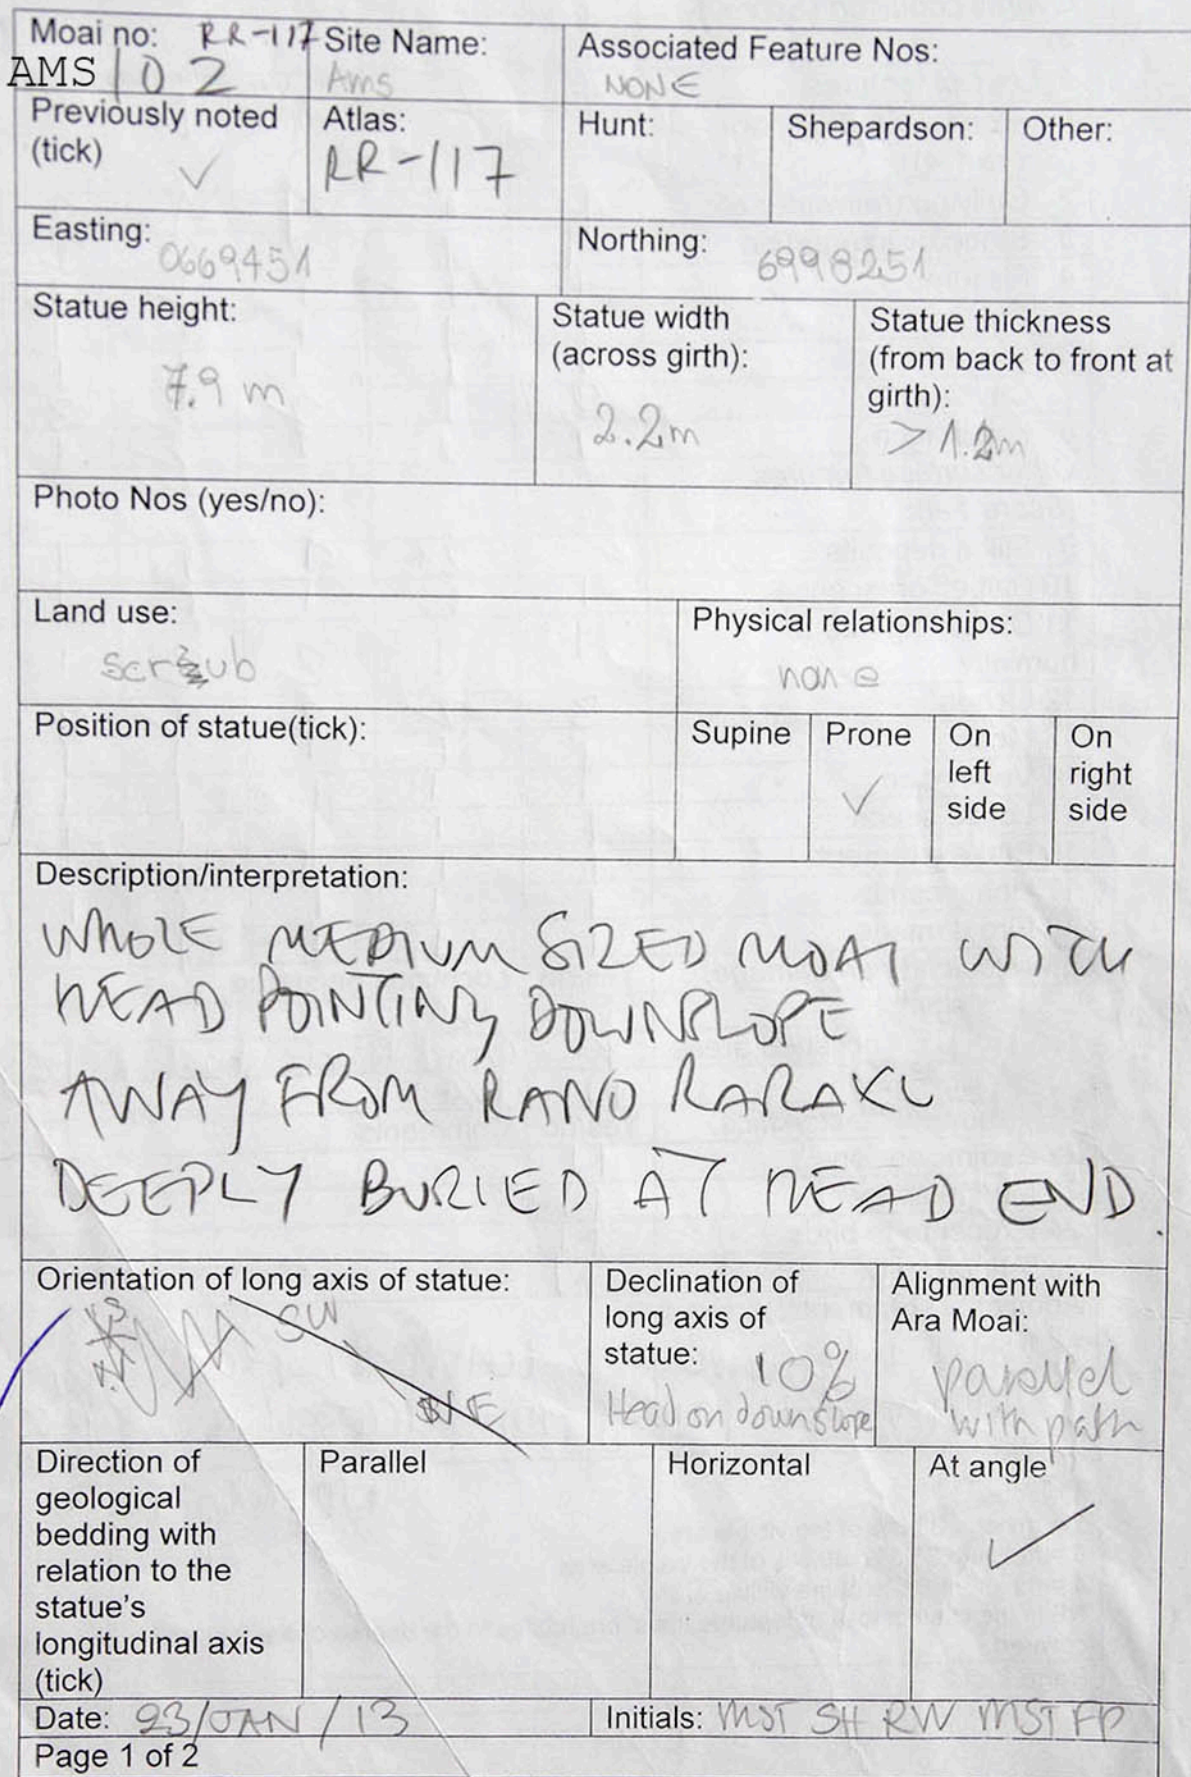 Moai no: RR-117
AMS 102
Site Name:
Ams
Associated Feature Nos:
NONE
Previously noted
(tick) ✓
Atlas:
RR-117
Hunt:
Shepardson:
Other:
Easting:
0669451
Northing:
6998251
Statue height:
7.9 m
Statue width
(across girth):
2.2m
Statue thickness
(from back to front at
girth):
>1.2m
Photo Nos (yes/no):
Land use:
scrub
Physical relationships:
none
Position of statue(tick):
Supine
Prone
✓
On
left
side
On
right
side
Description/interpretation:
WHOLE MEDIUM SIZED MOAI WITH
HEAD POINTING DOWNSLOPE
AWAY FROM RANO RARAKU
DEEPLY BURIED AT HEAD END.
Orientation of long axis of statue:
SW
NE
Declination of
long axis of
statue: 10%
Head on downslope
Alignment with
Ara Moai:
parallel
with path
Direction of
geological
bedding with
relation to the
statue's
longitudinal axis
(tick)
Parallel
Horizontal
At angle
✓
Date: 23/JAN/13
Initials: MST SH RW MST FP
Page 1 of 2